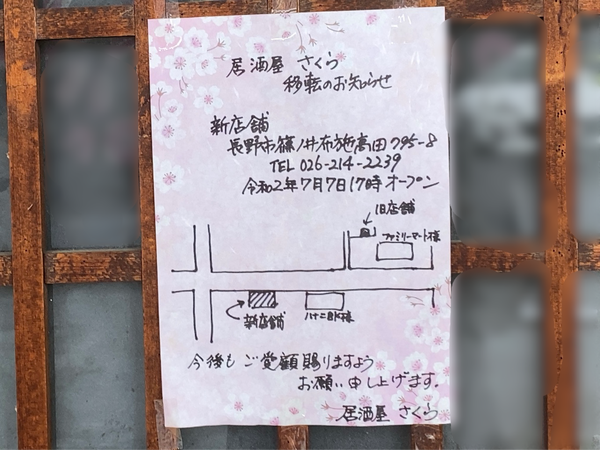 居酒屋 さくら
移転のお知らせ
新店舗
長野市篠ノ井布施高田795-8
TEL 026-214-2239
令和2年7月7日17時オープン
旧店舗
ファミリーマート様
新店舗
八十二BK様
今後もご愛顧賜りますよう
お願い申し上げます。
居酒屋 さくら